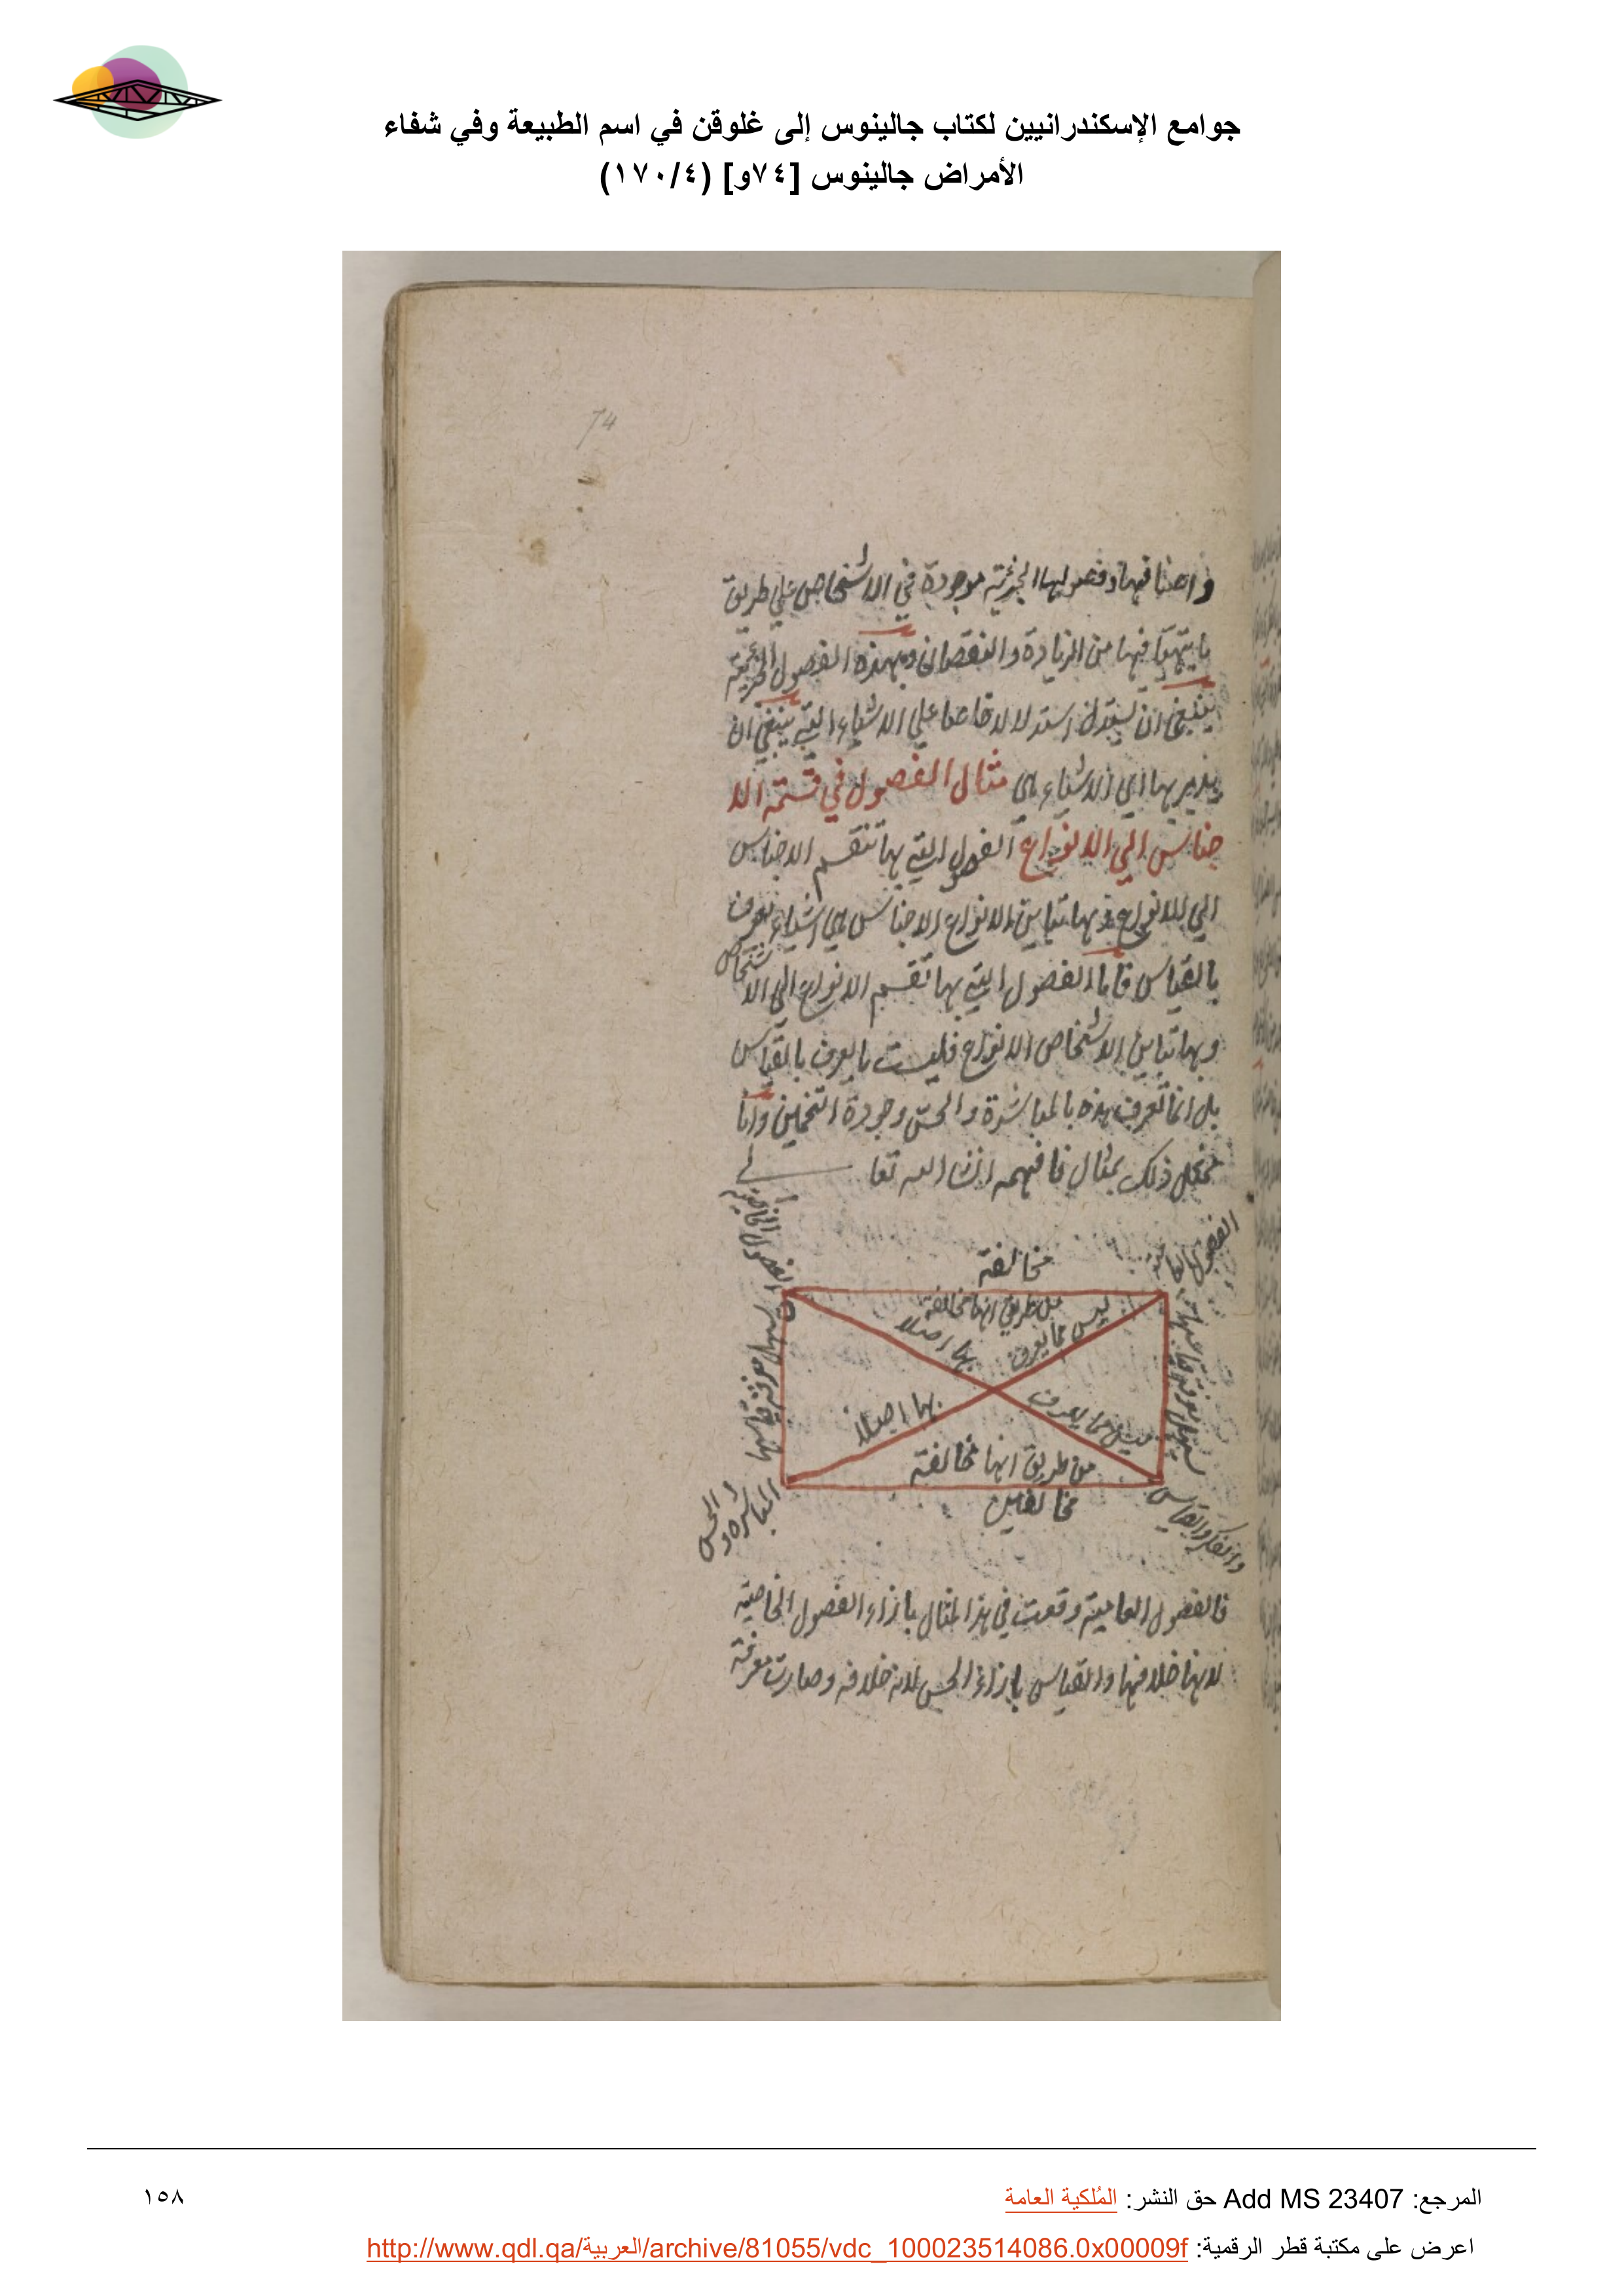 جوامع الإسكندرانيين لكتاب جالينوس إلى غلوقن في اسم الطبيعة وفي شفاء
الأمراض جالينوس [٧٤و] (١٧٠/٤)
74
واصنافها وفصولها الجزئية موجودة في الاشخاص علي طريق
ما يتهيا فيها من الزيادة والنقصان وبهذه الفصول الجزئية
ينبغي ان يستدل استدلالا خاصا علي الاشياء التي ينبغي ان
يتدبر بها اي الاشياء هي مثال الفصول في قسمة الا
جناس الي الانواع الفصول التي بها تنقسم الاجناس
الي الانواع وبها تباين الانواع الاجناس هي اشياء تعرف
بالقياس فاما الفصول التي بها تقسم الانواع الي الاشخاص
وبها تباين الاشخاص الانواع فليست مايعرف بالقياس
بل انما تعرف هذه بالمباشرة والحس وجودة التخمين وانا
ممثل ذلك بمثال فافهمه انشا الله تعا لي
الفصول العامية
مخالفة
الفصول الخاصية
من طريق انها مخالفة
ليس مما يعرف
بها اصلا
ليس مما يعرف
بها اصلا
من طريق انها مخالفة
مخالفين
والفكر والقياس
المباشرة والحس
فالفصول العامية وقعت في هذا المثال بازاء الفصول الخاصية
لانها خلافها والقياس بازاء الحس لانه خلافه وصارت معرفة
المرجع: Add MS 23407 حق النشر: المُلكية العامة
١٥٨
اعرض على مكتبة قطر الرقمية: http://www.qdl.qa/العربية/archive/81055/vdc_100023514086.0x00009f